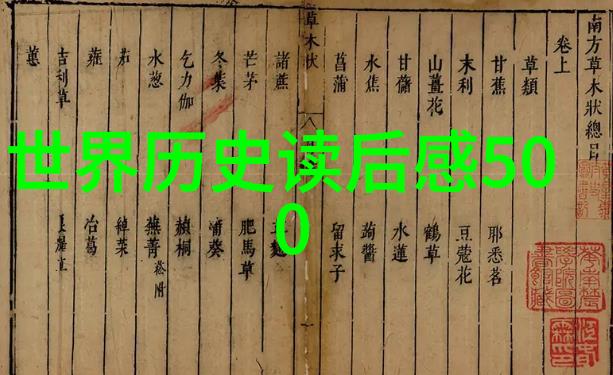 世界历史读后感50
0
南方草木狀總目
卷上
草類
甘蕉 耶悉茗
末利 豆蔻花
山薑花 鶴草
甘藷 水蓮
水蕉 蒟醬
菖蒲 留求子
草木狀
諸蔗
芒茅 肥馬草
冬葉 蒲葵
乞力伽 赬桐
水葱 蕪菁 菘附
茄 綽菜
蕹 冶葛
吉利草
蕙